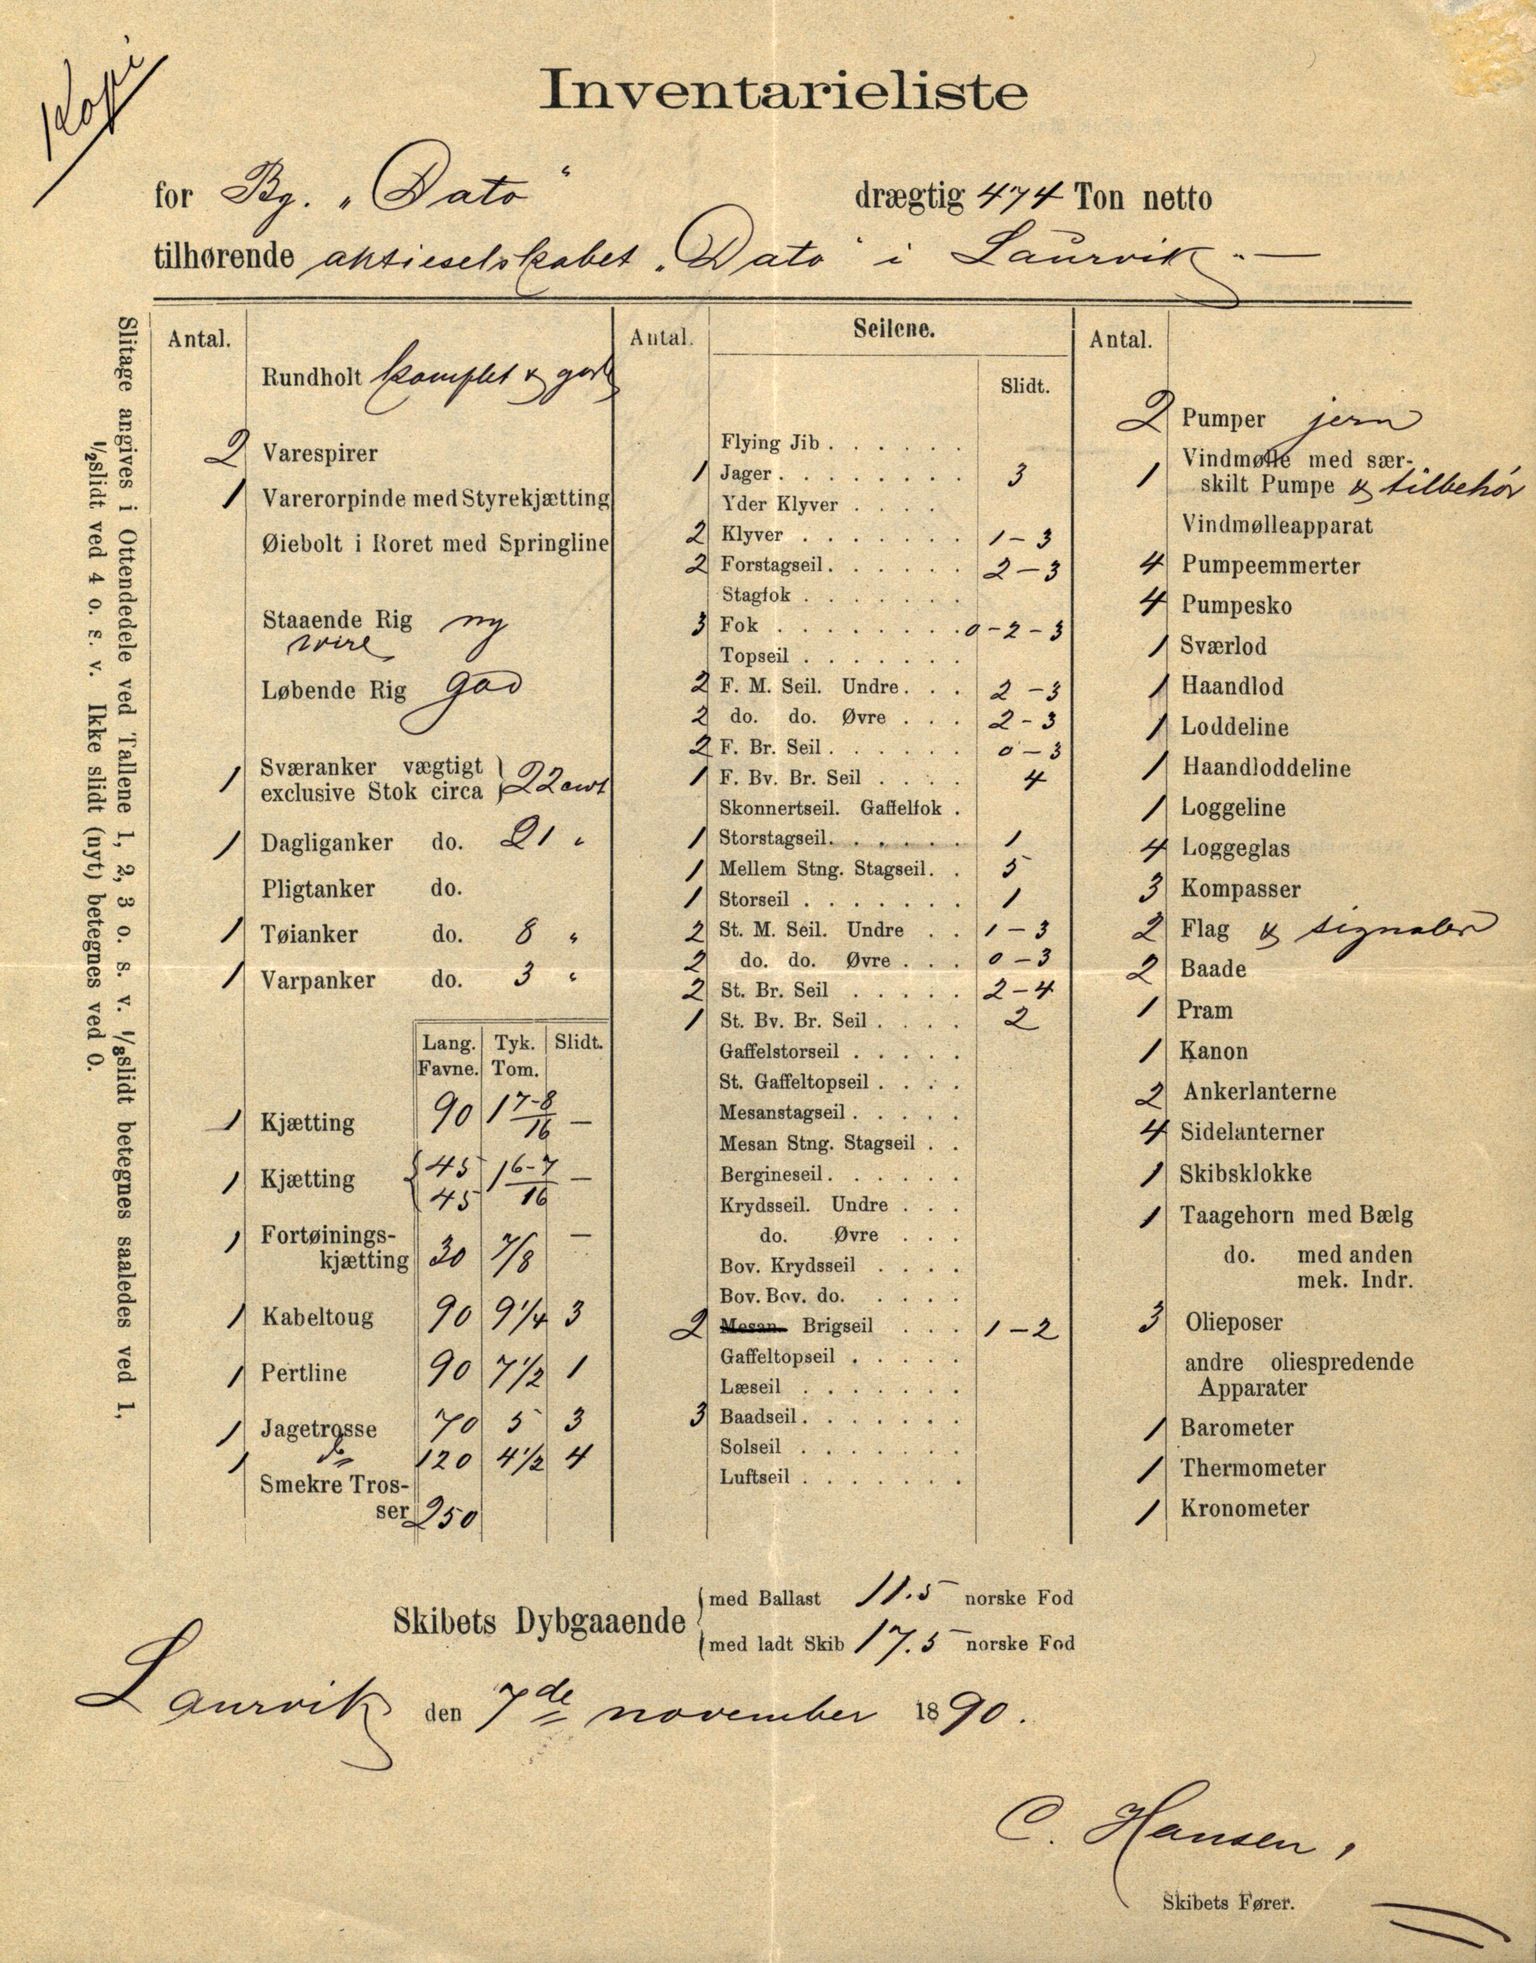 Kopi
Inventarieliste
for Bg. „Dato“ drægtig 474 Ton netto
tilhørende aktieselskabet „Dato“ i Laurvik.—
Slitage angives i Ottendedele ved Tallene 1, 2, 3 o. s. v. 1/8slidt betegnes saaledes ved 1,
1/2slidt ved 4 o. s. v. Ikke slidt (nyt) betegnes ved 0.
Antal.
Rundholt komplet & god
2 Varespirer
1 Varerorpinde med Styrekjætting
Øiebolt i Roret med Springline
Staaende Rig ny
wire
Løbende Rig god
1 Sværanker vægtigt
exclusive Stok circa 22 cwt
1 Dagliganker do. 21 "
Pligtanker do.
1 Tøianker do. 8 "
1 Varpanker do. 3 "
Lang. Tyk. Slidt.
Favne. Tom.
1 Kjætting 90 1 7-8/16 —
1 Kjætting { 45 45 1 6-7/16 —
1 Fortøinings-
kjætting 30 7/8 —
1 Kabeltoug 90 9 1/4 3
1 Pertline 90 7 1/2 1
1 Jagetrosse 70 5 3
1 do 120 4 1/2 4
Smekre Tros-
ser 250
Antal. Seilene.
Slidt.
Flying Jib . . . . .
1 Jager . . . . . . . . 3
Yder Klyver . . . .
2 Klyver . . . . . . . 1-3
2 Forstagseil . . . . . . 2-3
Stagfok . . . . . . .
3 Fok . . . . . . . . 0-2-3
Topseil . . . . . . .
2 F. M. Seil. Undre . . . 2-3
2 do. do. Øvre . . . 2-3
2 F. Br. Seil . . . . . . 0-3
1 F. Bv. Br. Seil . . . . 4
Skonnertseil. Gaffelfok .
1 Storstagseil . . . . . . 1
1 Mellem Stng. Stagseil . . 5
1 Storseil . . . . . . . 1
2 St. M. Seil. Undre . . 1-3
2 do. do. Øvre . . . 0-3
2 St. Br. Seil . . . . . 2-4
1 St. Bv. Br. Seil . . . . 2
Gaffelstorseil . . . . .
St. Gaffeltopseil . . . .
Mesanstagseil . . . . .
Mesan Stng. Stagseil . .
Bergineseil . . . . . .
Krydsseil. Undre . . .
do. Øvre . . .
Bov. Krydsseil . . . .
Bov. Bov. do. . . . .
2 Mesan Brigseil . . . 1-2
Gaffeltopseil . . . . .
Læseil . . . . . . .
3 Baadseil . . . . . .
Solseil . . . . . . .
Luftseil . . . . . . .
Antal.
2 Pumper jern
1 Vindmølle med sær-
skilt Pumpe & tilbehör
Vindmølleapparat
4 Pumpeemmerter
4 Pumpesko
1 Sværlod
1 Haandlod
1 Loddeline
1 Haandloddeline
1 Loggeline
4 Loggeglas
3 Kompasser
2 Flag & signaler
2 Baade
1 Pram
1 Kanon
2 Ankerlanterne
4 Sidelanterner
1 Skibsklokke
1 Taagehorn med Bælg
do. med anden
mek. Indr.
3 Olieposer
andre oliespredende
Apparater
1 Barometer
1 Thermometer
1 Kronometer
Skibets Dybgaaende
med Ballast 11.5 norske Fod
med ladt Skib 17.5 norske Fod
Laurvik den 7de november 1890.
C. Hansen,
Skibets Fører.